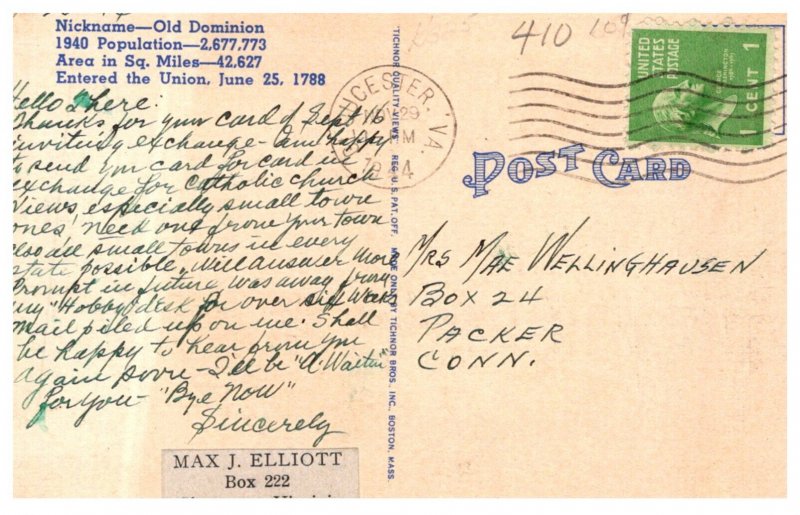 Nickname—Old Dominion
1940 Population—2,677,773
Area in Sq. Miles—42,627
Entered the Union, June 25, 1788
Hello there:
Thanks for your card of Sept 16
inviting exchange - am happy
to send you card for card in
exchange for Catholic church
views, especially small town
ones, need one from your town
also all small towns in every
state possible. Will answer more
prompt in future was away from
my "Hobby" desk for over six weeks
mail piled up on me. Shall
be happy to hear from you
again soon - I'll be "A Waitin"
for you - "Bye Now"
Sincerely
MAX J. ELLIOTT
Box 222
TICHNOR QUALITY VIEWS. REG. U.S. PAT. OFF. MADE ONLY BY TICHNOR BROS. INC., BOSTON, MASS.
410 109
CESTER, VA.
NOV 29
PM
UNITED STATES POSTAGE
1 CENT 1
POST CARD
MRS MAE WELLINGHAUSEN
BOX 24
PACKER
CONN.